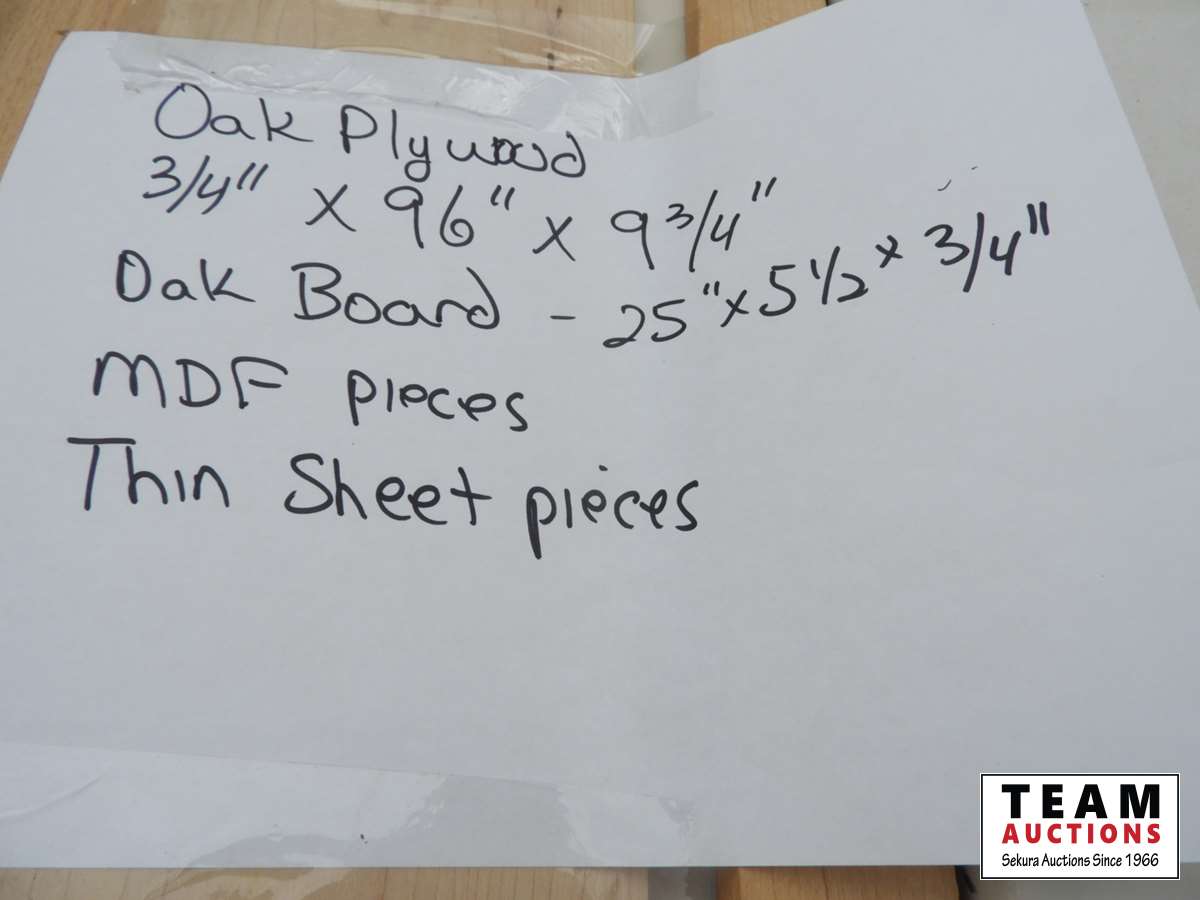 Oak Plywood
3/4" x 96" x 9 3/4"
Oak Board - 25" x 5 1/2 x 3/4"
MDF pieces
Thin Sheet pieces
TEAM
AUCTIONS
Sekura Auctions Since 1966